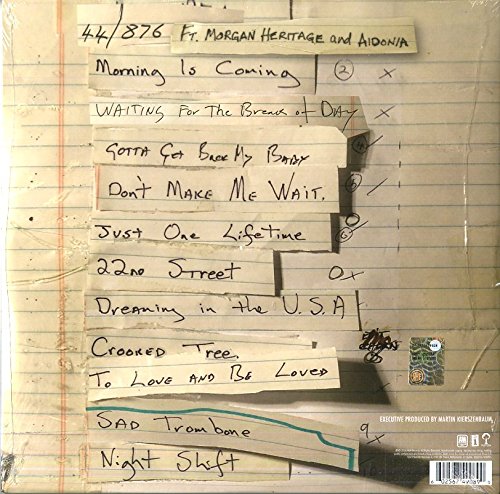 44/876 Ft. Morgan Heritage and Aidonia
Morning Is Coming 2 x
Waiting For The Break of Day x
Gotta Get Back My Baby
Don't Make Me Wait.
Just One Lifetime
22nd Street 0x
Dreaming in the U.S.A
Crooked Tree
To Love and Be Loved
Sad Trombone 9 x
Night Shift
EXECUTIVE PRODUCED BY MARTIN KIERSZENBAUM